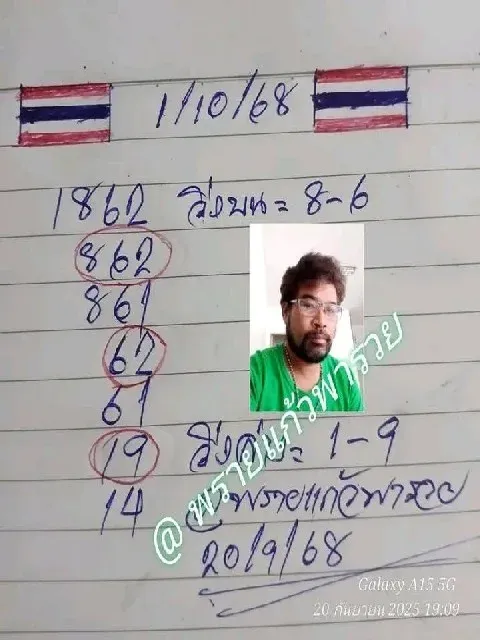 1/10/68
1862 วิ่งบน = 8-6
862
861
62
61
19 วิ่งล่าง = 1-9
14 @พรายแก้วพารวย
20/9/68
@ พรายแก้วพารวย
Galaxy A15 5G
20 กันยายน 2025 19:09